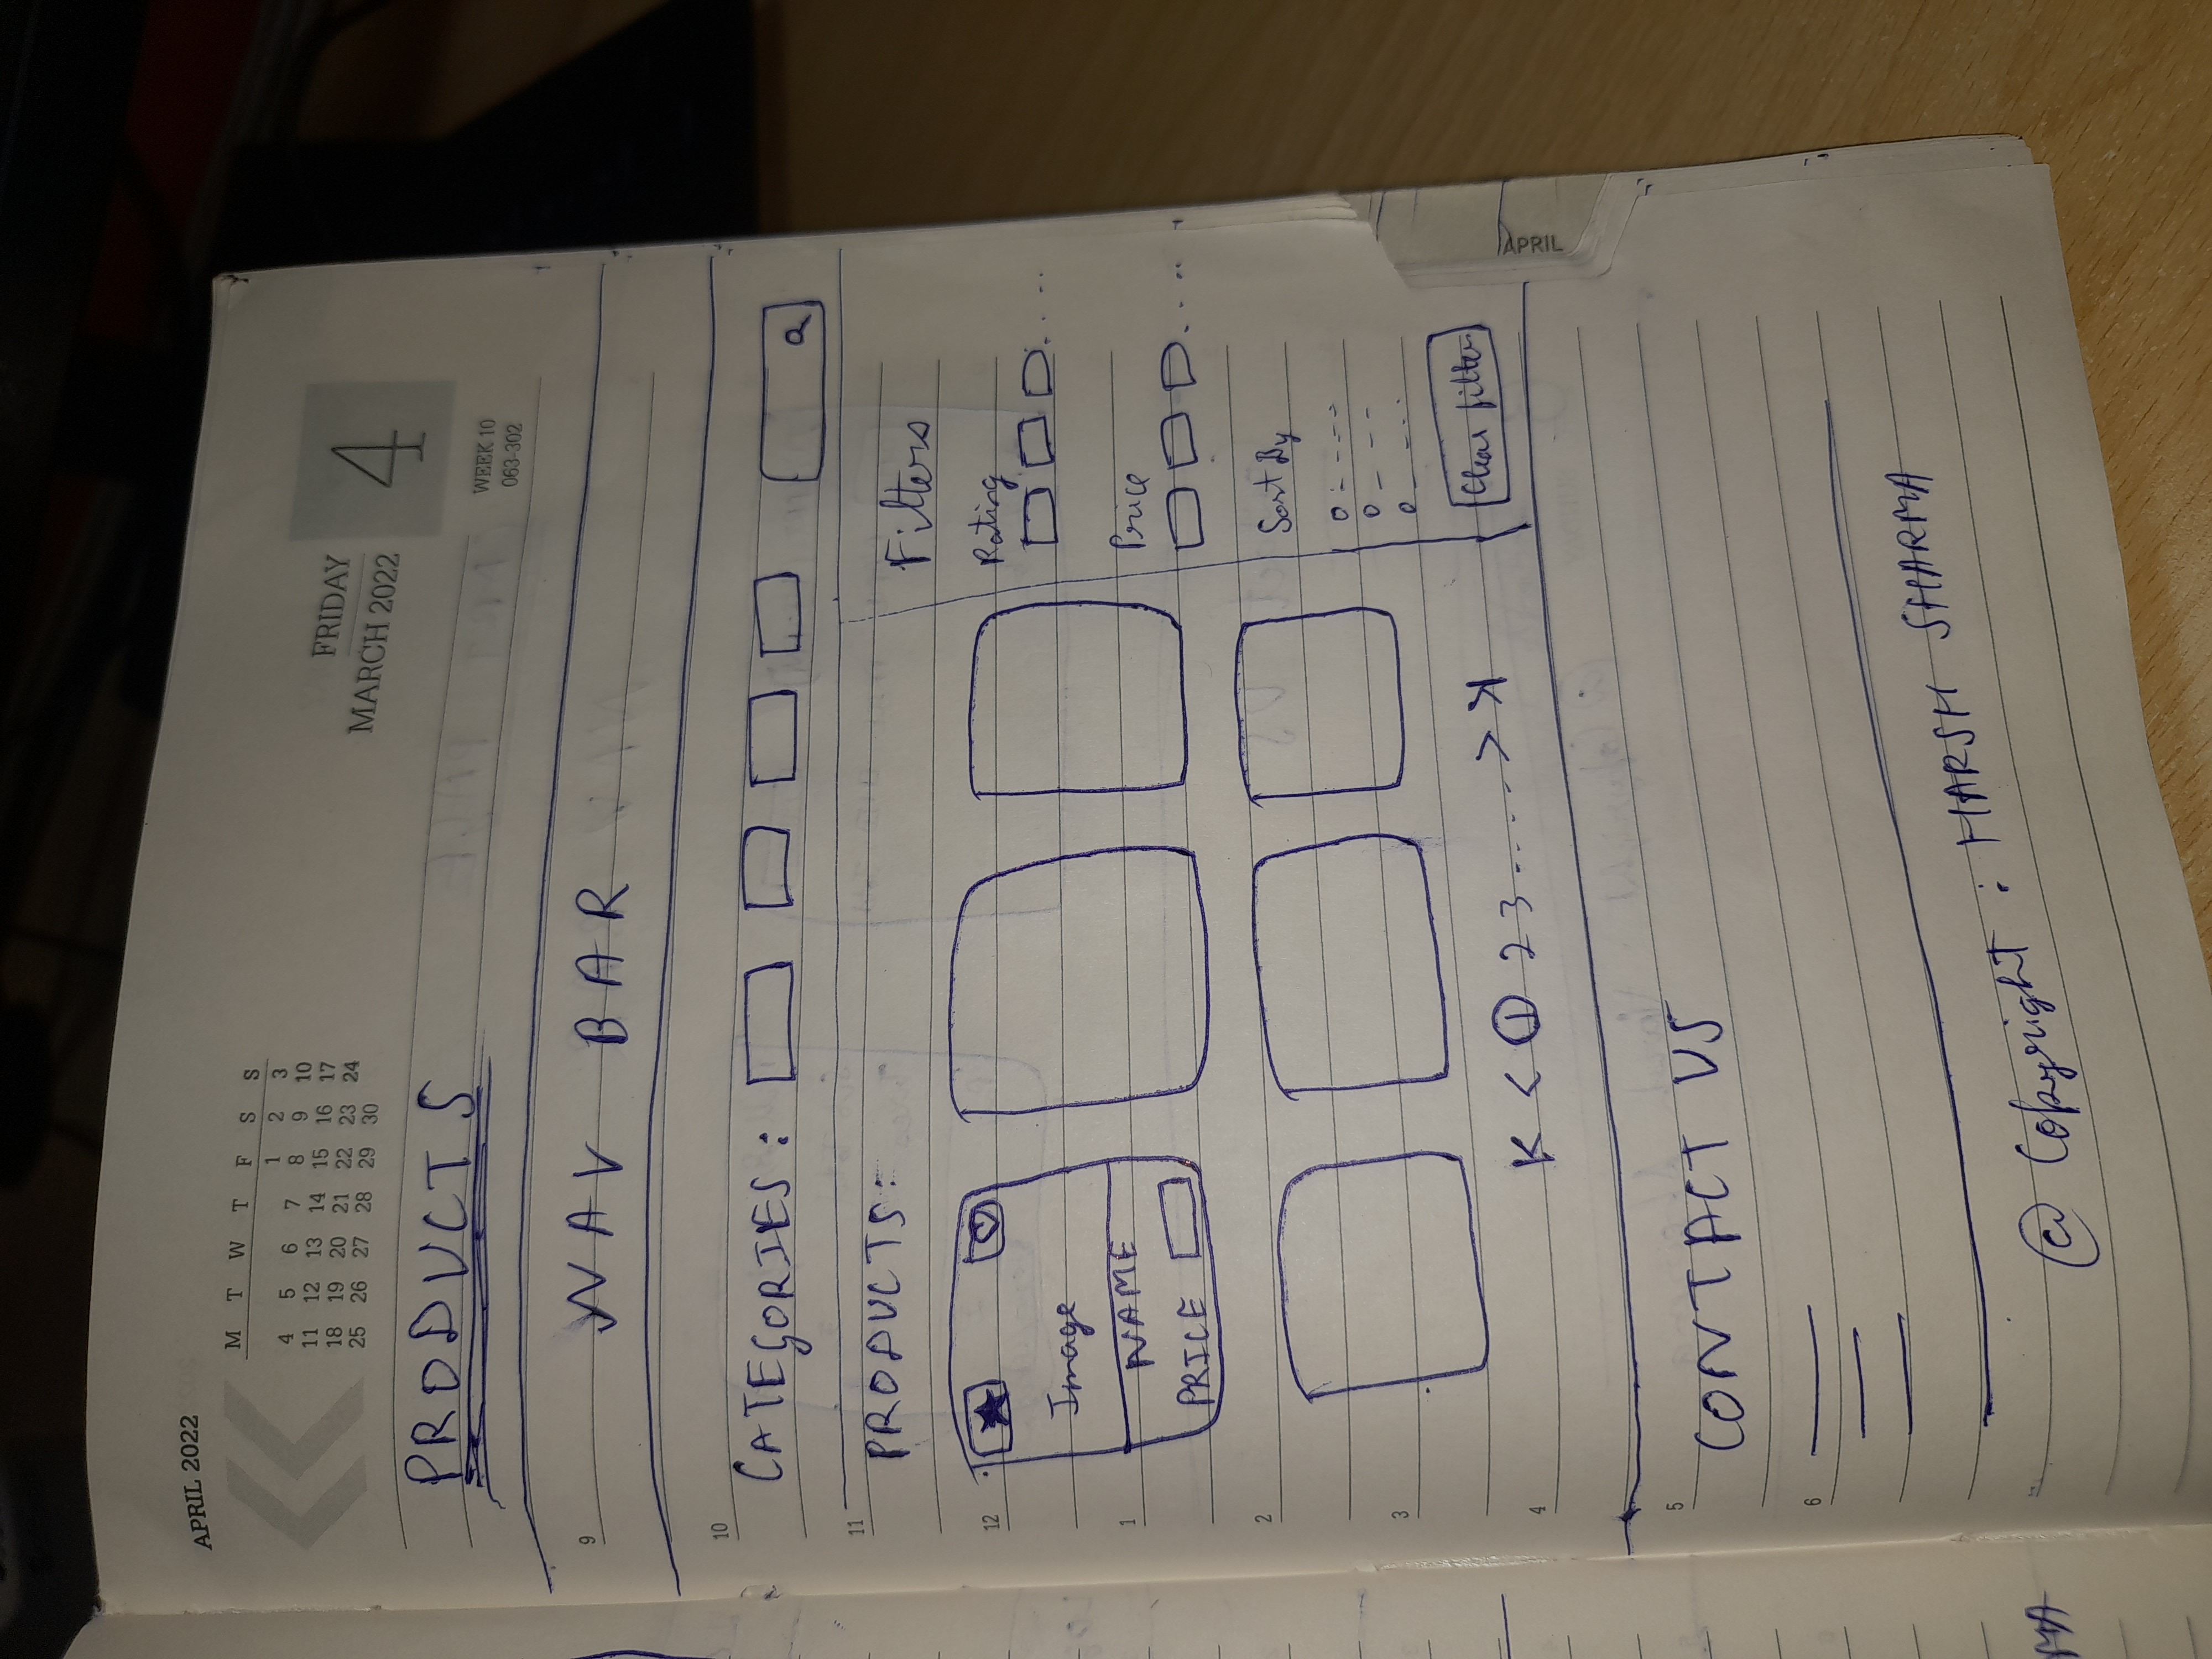 APRIL 2022
M T W T F S S
1 2 3
4 5 6 7 8 9 10
11 12 13 14 15 16 17
18 19 20 21 22 23 24
25 26 27 28 29 30
FRIDAY
MARCH 2022
4
WEEK 10
063-302
PRODUCTS
9
NAV BAR
10
CATEGORIES :
11
PRODUCTS :
Filters
12
Rating
Image
1
NAME
Price
PRICE
2
Sort By
3
Clear filter
K < 1 2 3 ..... > >|
4
APRIL
5
CONTACT US
6
@ Copyright : HARSH SHARMA
MA